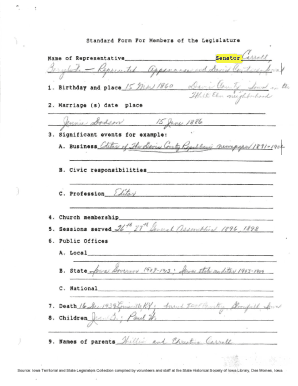 Standard Form For Members of the Legislature
Name of Representative Senator Carroll
Represented Appanoose and Davis
1. Birthday and place 15 Mar 1860 Davis County
2. Marriage (s) date place
Jennie Dodson 15 June 1886
3. Significant events for example:
A. Business Editor of the Davis County Republican newspaper 1891-
B. Civic responsibilities
C. Profession Editor
4. Church membership
5. Sessions served 26th 27th General Assemblies 1896, 1898
6. Public Offices
A. Local
B. State Iowa Governor 1909-1913; Iowa state auditor 1903-1909
C. National
7. Death
8. Children
9. Names of parents Willis and Christina Carroll
Source: Iowa Territorial and State Legislators Collection compiled by volunteers and staff at the State Historical Society of Iowa Library, Des Moines, Iowa.